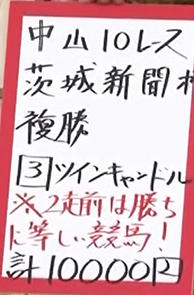 中山10レース
茨城新聞杯
複勝
3 ツインキャンドル
※2走前は勝ち
に等しい競馬!
計10000円